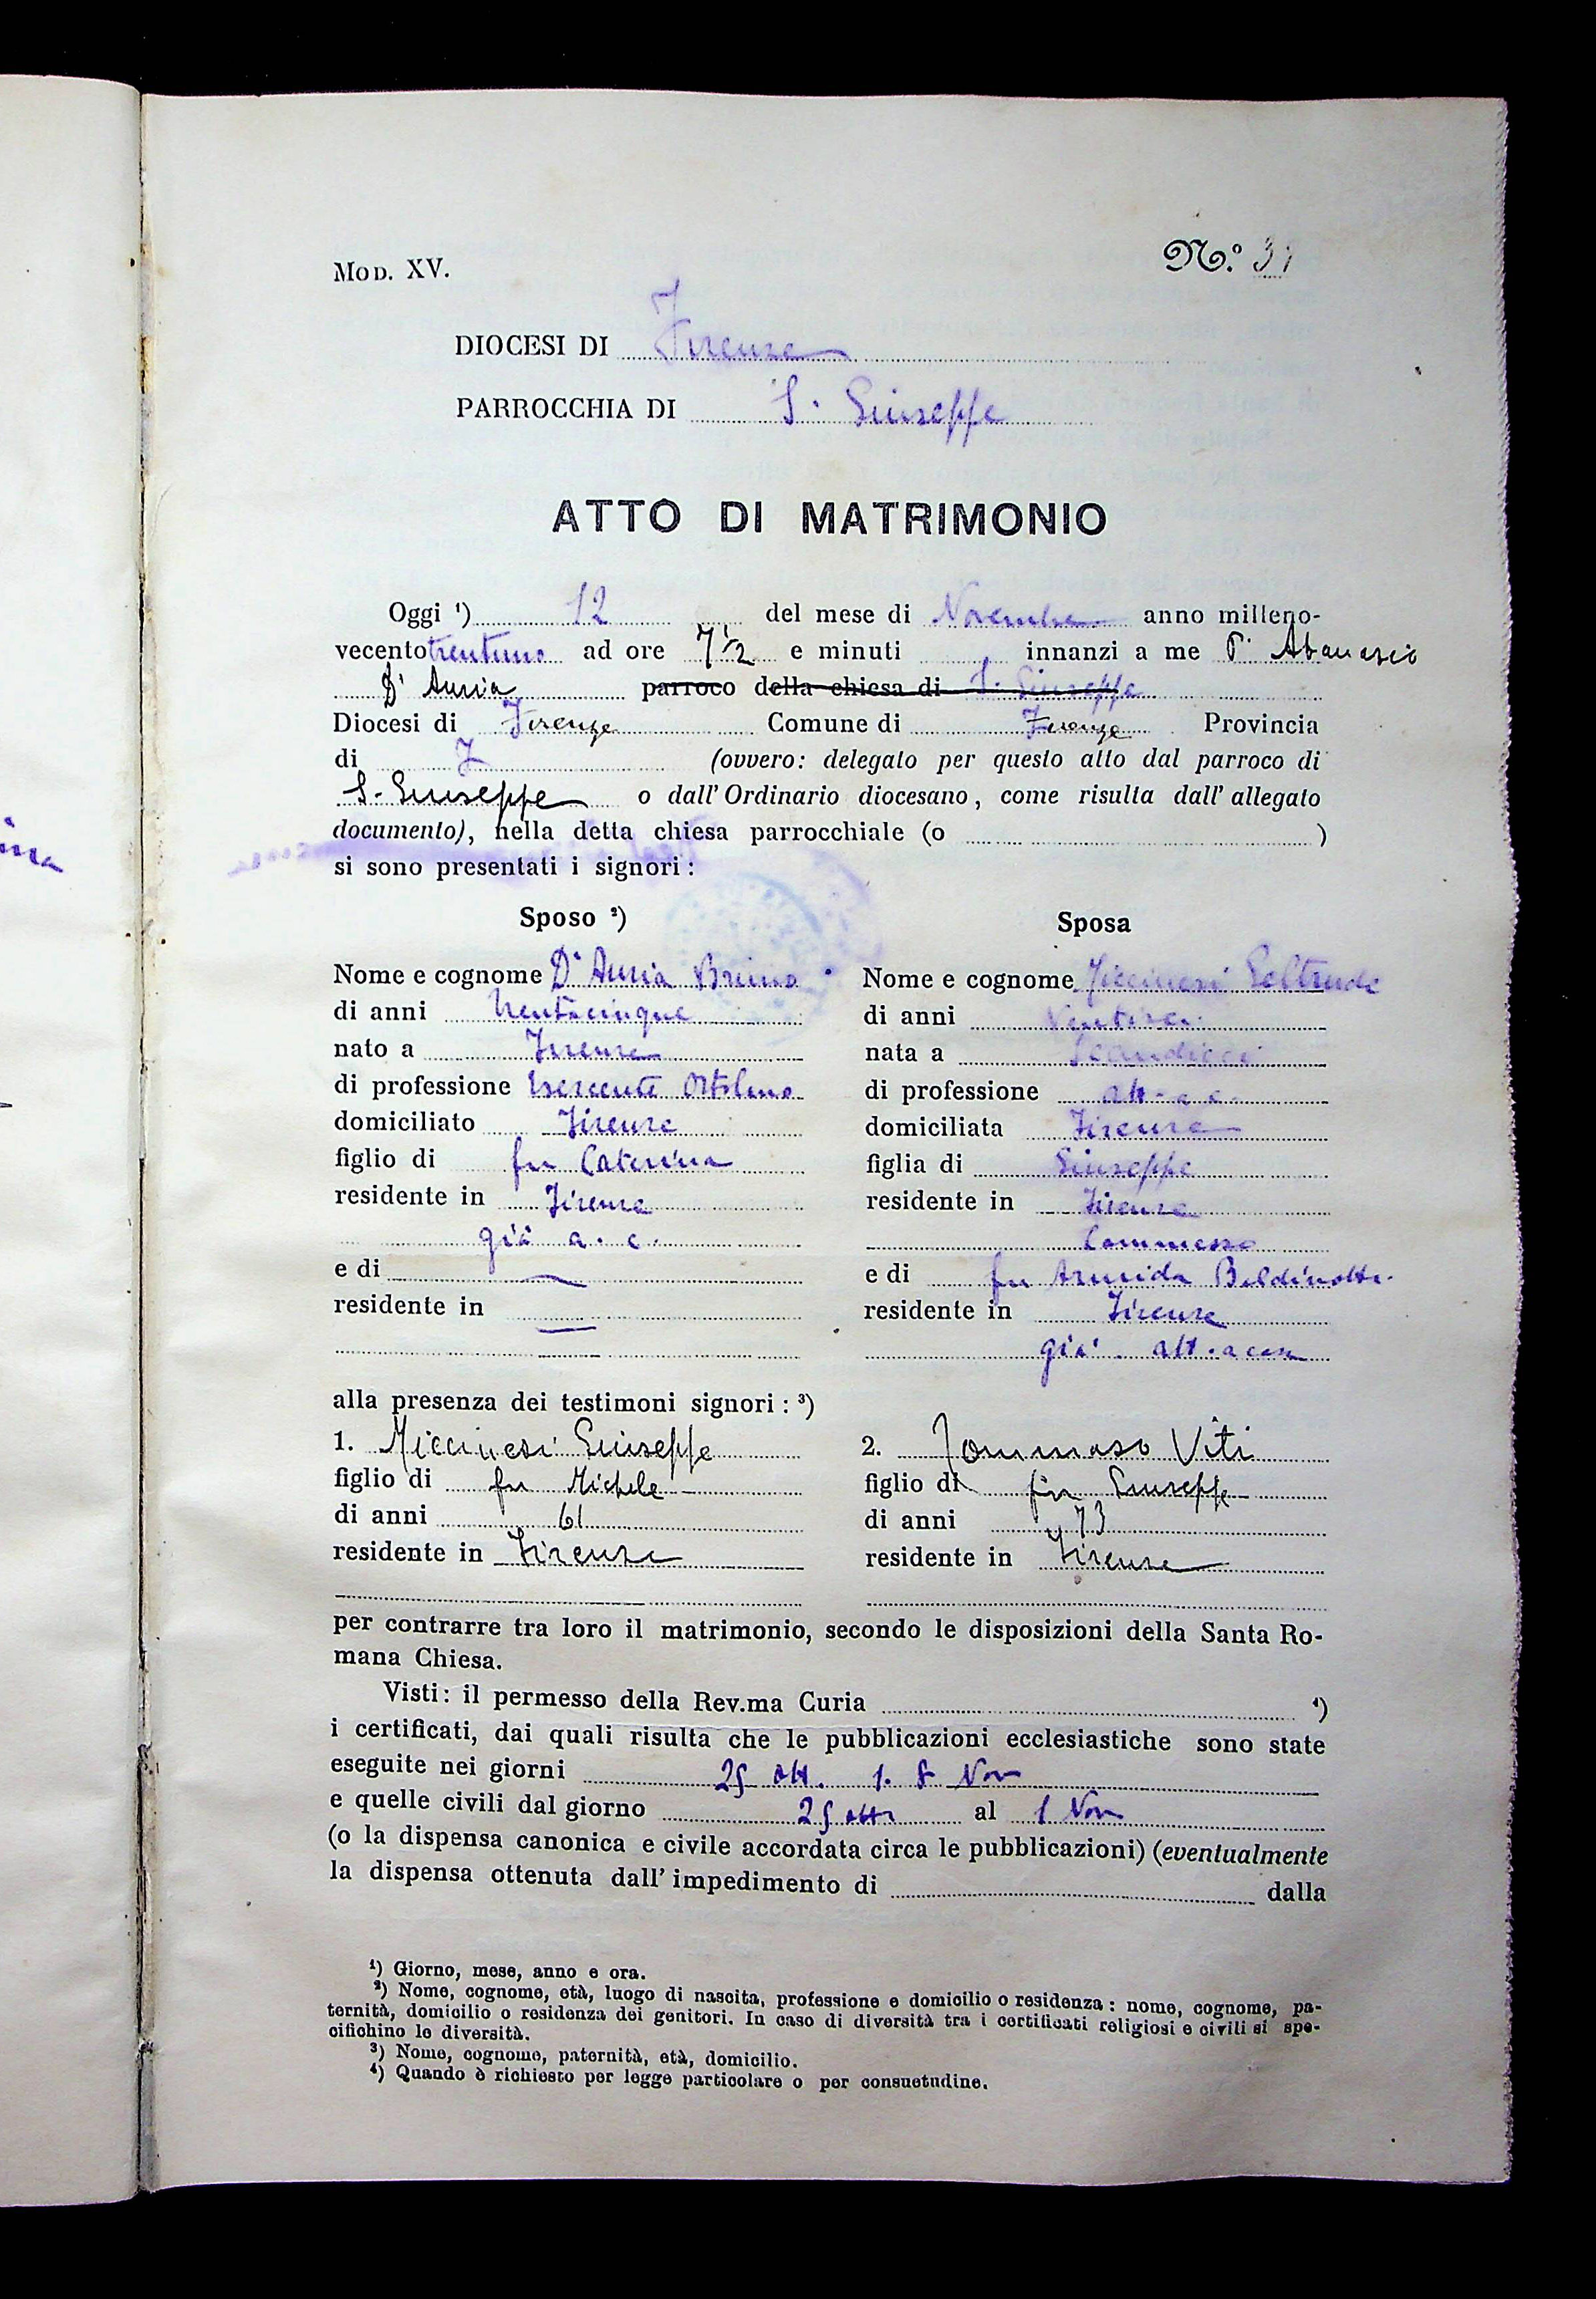 Mod. XV.
N.º 31
DIOCESI DI Firenze
PARROCCHIA DI S. Giuseppe
ATTO DI MATRIMONIO
Oggi ¹) 12 del mese di Novembre anno milleno-
vecentotrentuno ad ore 7 1/2 e minuti innanzi a me P. Atanasio
D'Auria parroco della chiesa di S. Giuseppe
Diocesi di Firenze Comune di Firenze Provincia
di F (ovvero: delegato per questo atto dal parroco di
S. Giuseppe o dall' Ordinario diocesano, come risulta dall' allegato
documento), nella detta chiesa parrocchiale (o )
si sono presentati i signori:
Sposo ²)
Nome e cognome D'Auria Bruno
di anni trentacinque
nato a Firenze
di professione Esercente Ortolano
domiciliato Firenze
figlio di fu Caterina
residente in Firenze
già a. c.
e di
residente in
Sposa
Nome e cognome Miccinesi Geltrude
di anni Ventisei
nata a Scandicci
di professione att. a c.
domiciliata Firenze
figlia di Giuseppe
residente in Firenze
Commesso
e di fu Armida Baldinotti
residente in Firenze
già att. a casa
alla presenza dei testimoni signori: ³)
1. Miccinesi Giuseppe
figlio di fu Michele
di anni 61
residente in Firenze
2. Tommaso Viti
figlio di fu Giuseppe
di anni 73
residente in Firenze
per contrarre tra loro il matrimonio, secondo le disposizioni della Santa Ro-
mana Chiesa.
Visti: il permesso della Rev.ma Curia ⁴)
i certificati, dai quali risulta che le pubblicazioni ecclesiastiche sono state
eseguite nei giorni 25 ott. 1. 8 Nov
e quelle civili dal giorno 25 ott al 1 Nov
(o la dispensa canonica e civile accordata circa le pubblicazioni) (eventualmente
la dispensa ottenuta dall' impedimento di dalla
¹) Giorno, mese, anno e ora.
²) Nome, cognome, età, luogo di nascita, professione e domicilio o residenza: nome, cognome, pa-
ternità, domicilio o residenza dei genitori. In caso di diversità tra i certificati religiosi e civili si spe-
cifichino le diversità.
³) Nome, cognome, paternità, età, domicilio.
⁴) Quando è richiesto per legge particolare o per consuetudine.